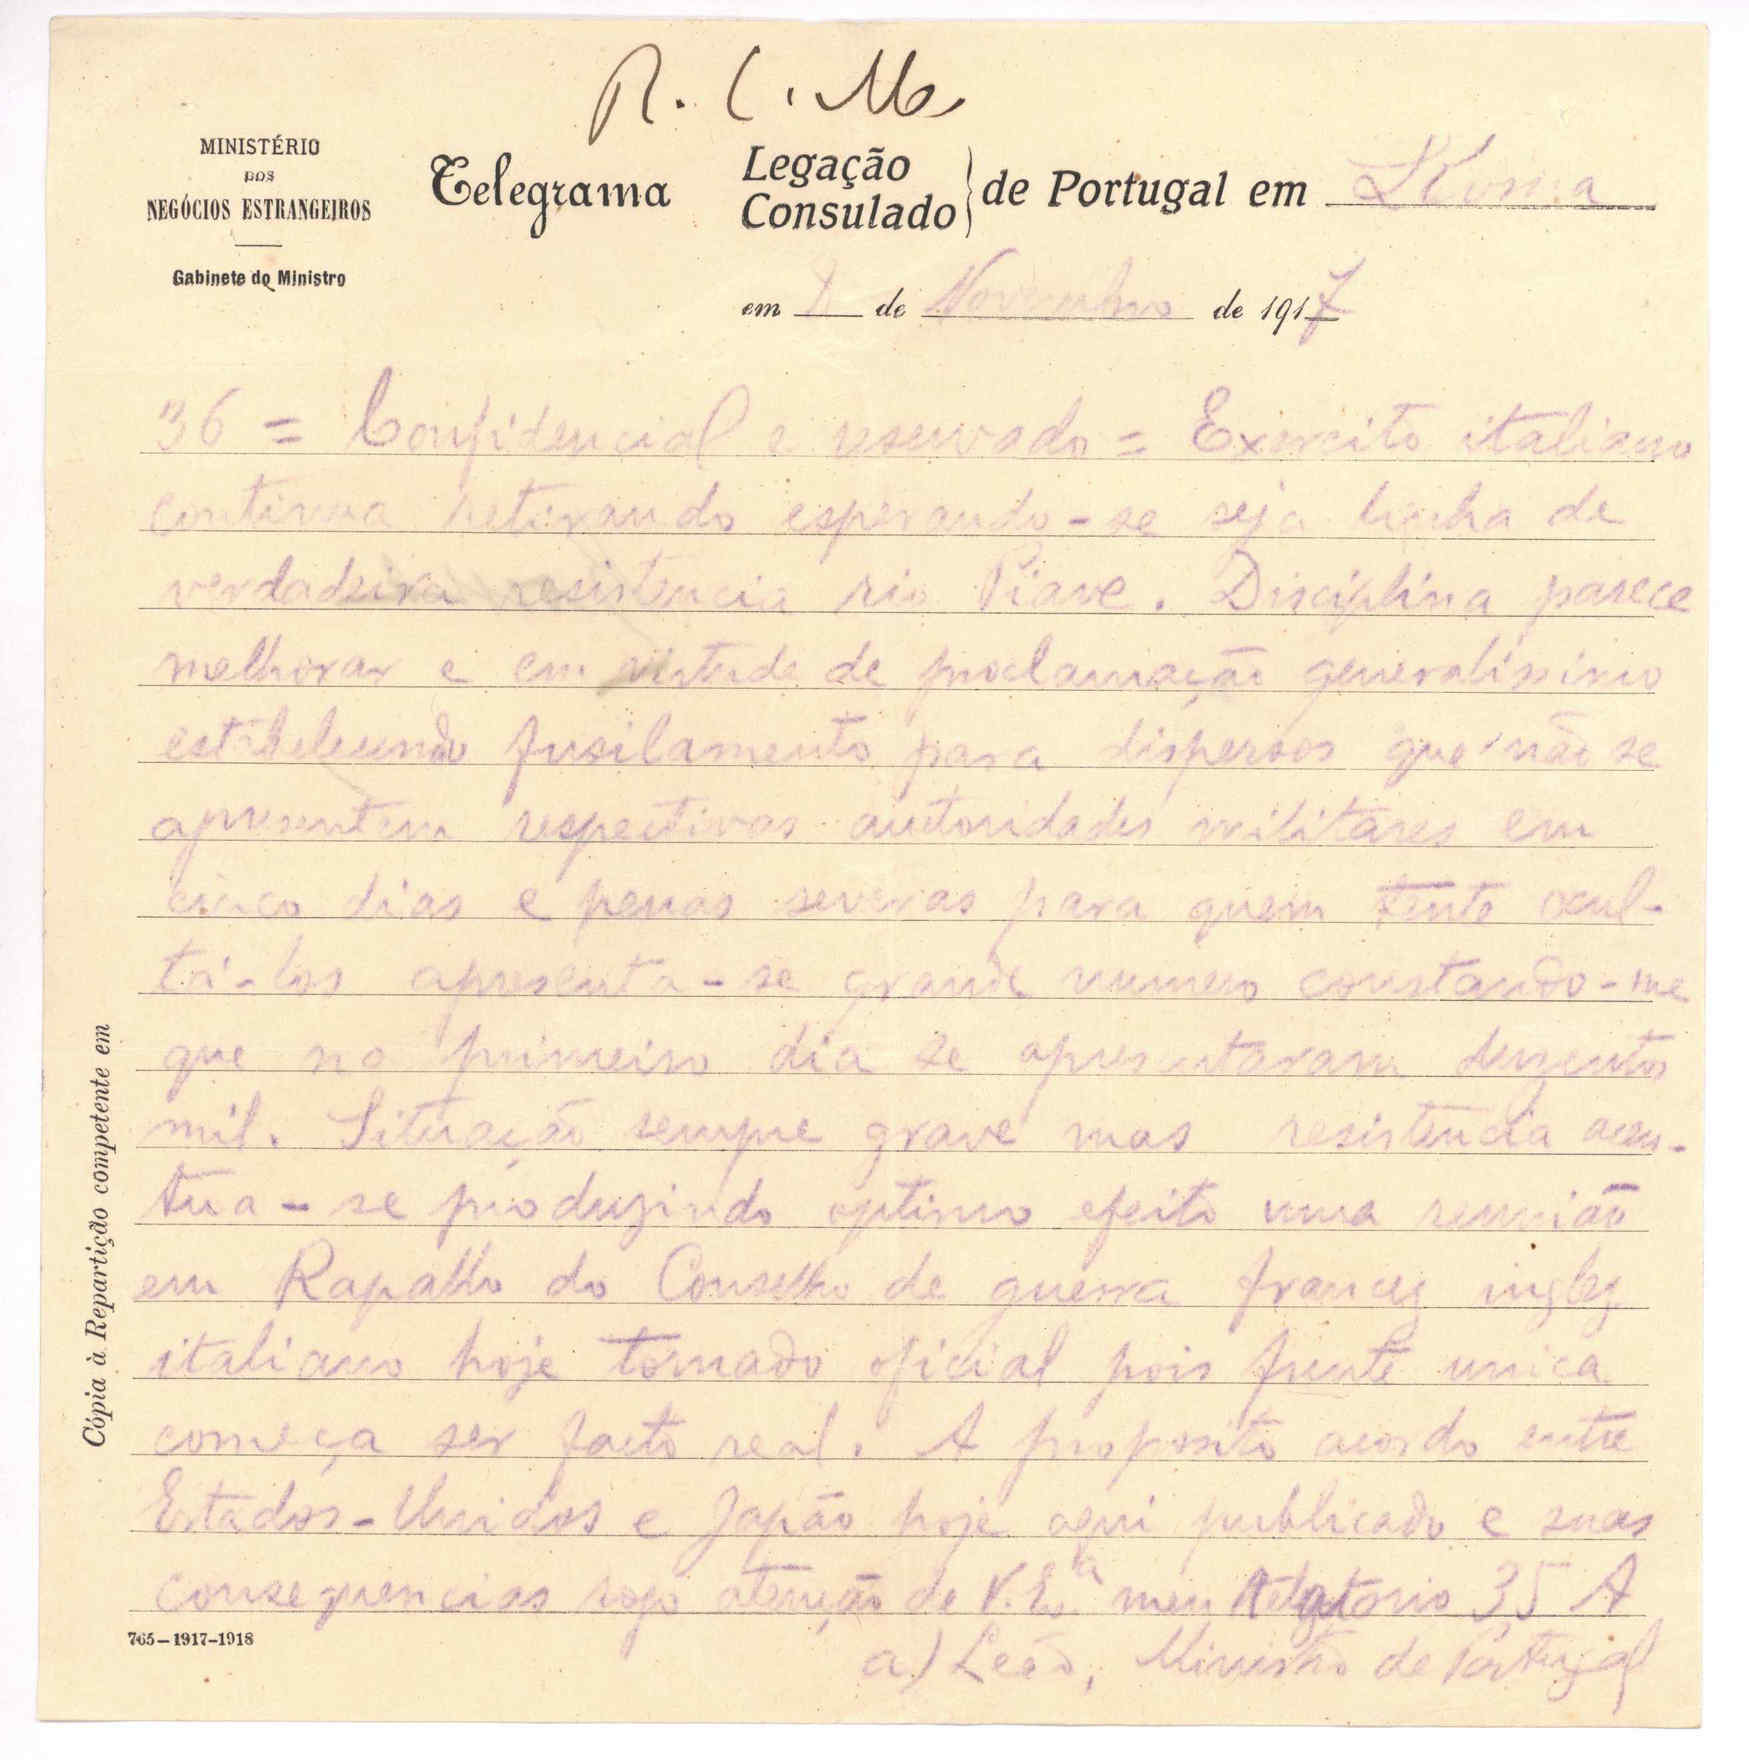 R. C. M.
MINISTÉRIO
DOS
NEGÓCIOS ESTRANGEIROS
Gabinete do Ministro
Telegrama
Legação
Consulado
de Portugal em Roma
em de Novembro de 1917
36 = Confidencial e reservado = Exercito italiano
continua retirando esperando-se seja linha de
verdadeira resistencia rio Piave. Disciplina parece
melhorar e em virtude de proclamação generalissimo
estabelecendo fusilamento para dispersos que não se
apresentem respectivas autoridades militares em
cinco dias e penas severas para quem tente ocul-
tá-los apresenta-se grande numero constando-me
que no primeiro dia se apresentaram duzentos
mil. Situação sempre grave mas resistencia acen-
túa-se produzindo optimo efeito uma reunião
em Rapallo do Conselho de guerra francez inglez
italiano hoje tornado oficial pois frente unica
começa ser facto real. A proposito acordo entre
Estados-Unidos e Japão hoje aqui publicado e suas
consequencias rogo atenção de V. Exª meu Relatorio 35 A
a) Leão, Ministro de Portugal
Cópia à Repartição competente em
765-1917-1918